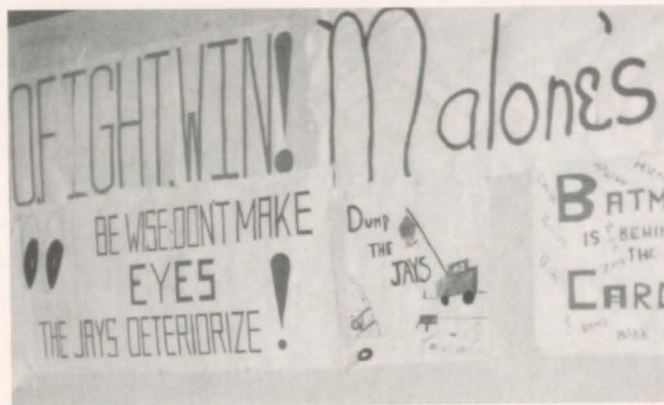 O.FIGHT.WIN!
Malone's
" BE WISE:DONT MAKE
EYES
THE JAYS DETERIORIZE !
DUMP
THE
JAYS
BATM
IS BEHIN
THE
CARD